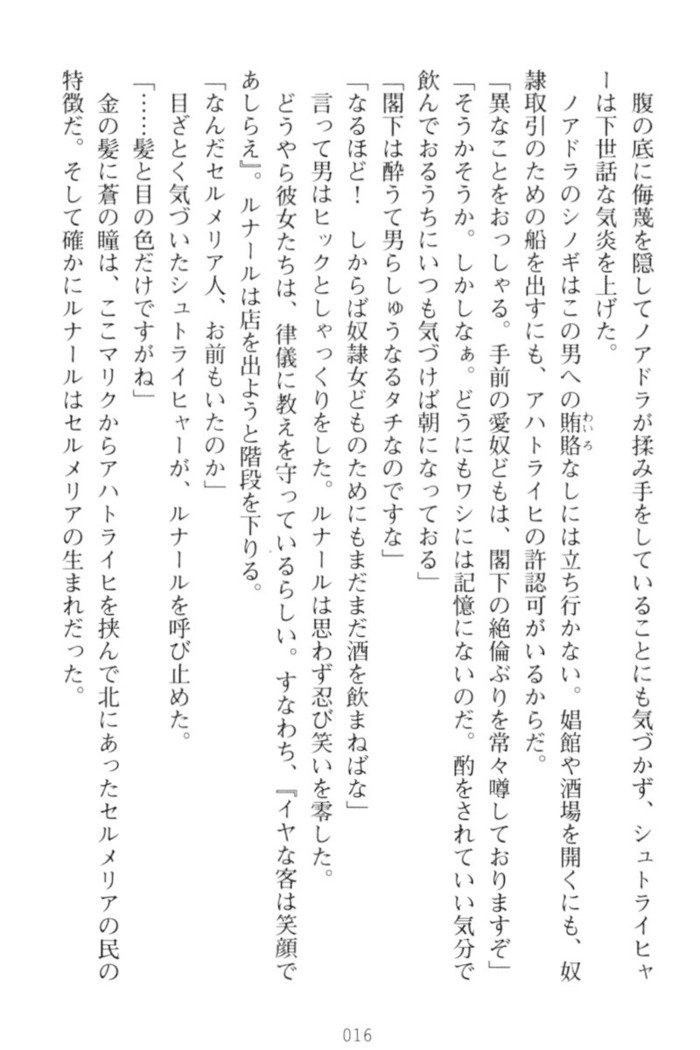 腹の底に侮蔑を隠してノアドラが揉み手をしていることにも気づかず、シュトライヒャ
ーは下世話な気炎を上げた。
ノアドラのシノギはこの男への賄賂なしには立ち行かない。娼館や酒場を開くにも、奴
わいろ
隷取引のための船を出すにも、アハトライヒの許認可がいるからだ。
「異なことをおっしゃる。手前の愛奴どもは、閣下の絶倫ぶりを常々噂しておりますぞ」
「そうかそうか。しかしなぁ。どうにもワシには記憶にないのだ。酌をされていい気分で
飲んでおるうちにいつも気づけば朝になっておる」
「閣下は酔うて男らしゅうなるタチなのですな」
「なるほど！　しからば奴隷女どものためにもまだまだ酒を飲まねばな」
言って男はヒックとしゃっくりをした。ルナールは思わず忍び笑いを零した。
どうやら彼女たちは、律儀に教えを守っているらしい。すなわち、『イヤな客は笑顔で
あしらえ』。ルナールは店を出ようと階段を下りる。
「なんだセルメリア人、お前もいたのか」
目ざとく気づいたシュトライヒャーが、ルナールを呼び止めた。
「……髪と目の色だけですがね」
金の髪に蒼の瞳は、ここマリクからアハトライヒを挟んで北にあったセルメリアの民の
特徴だ。そして確かにルナールはセルメリアの生まれだった。
016